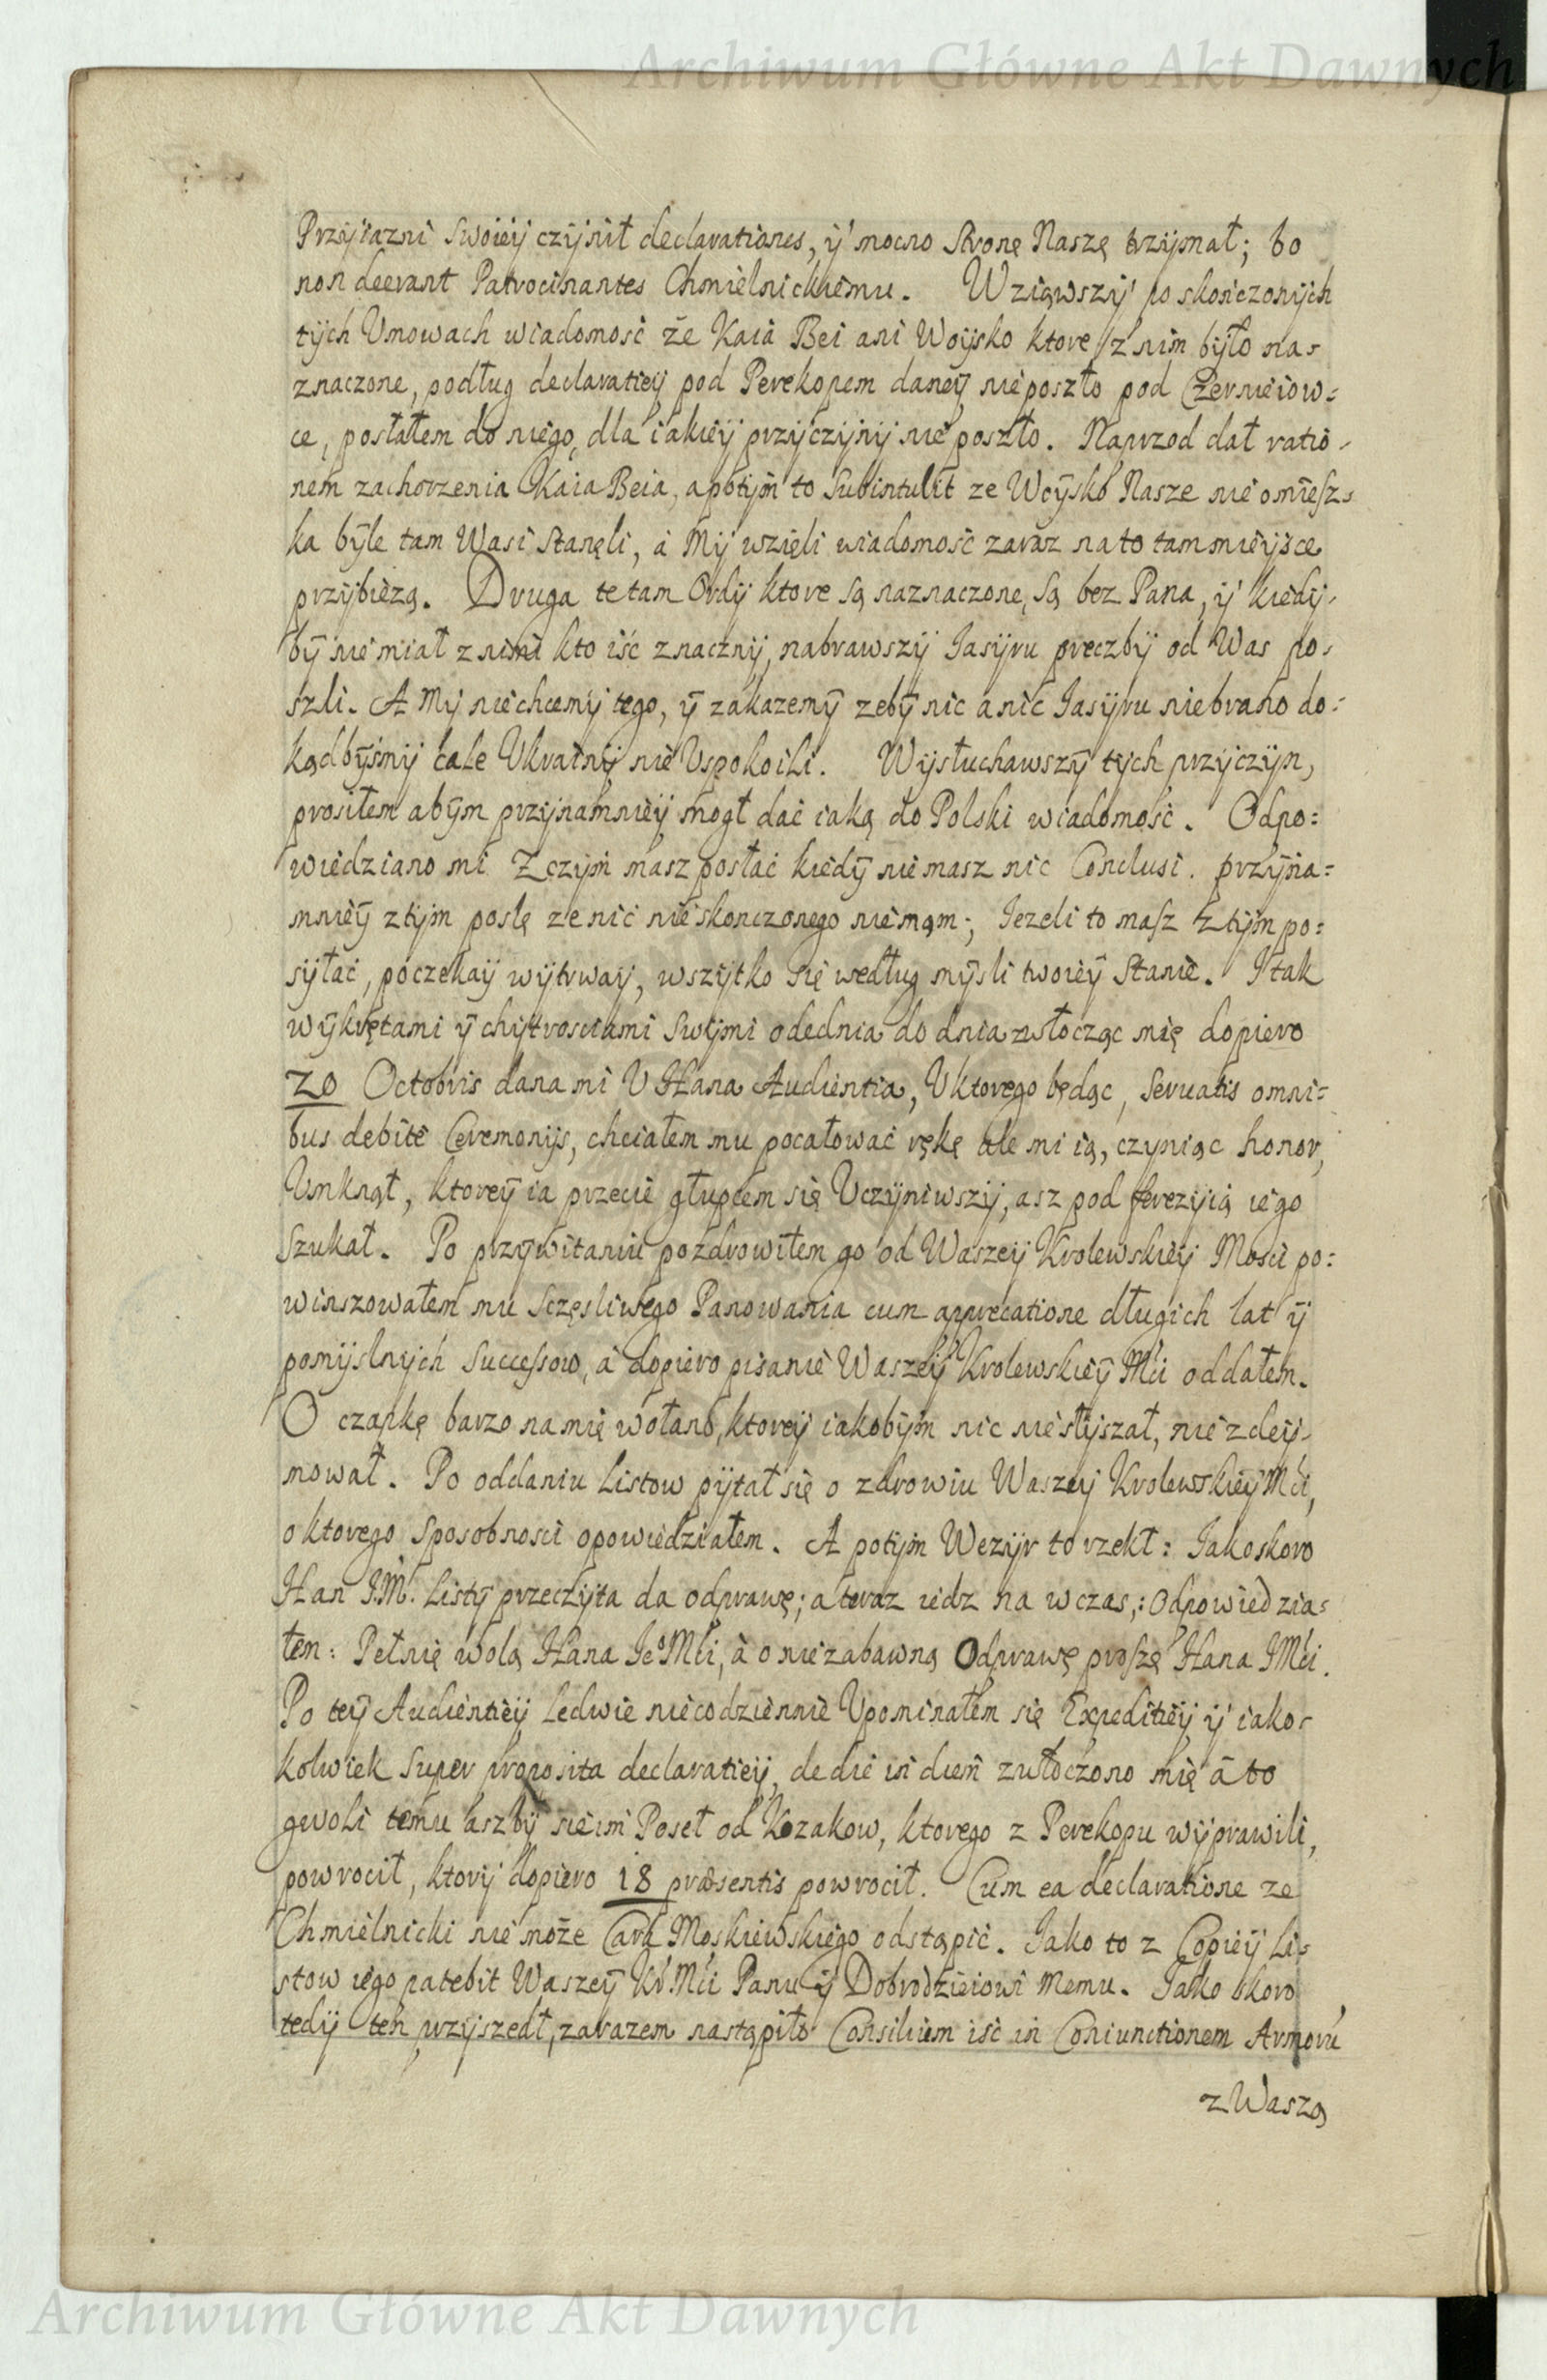 Archiwum Główne Akt Dawnych
Przyiazni Swoiey czynił declarationes, y mocno Stronę Naszę trzymał; bo
non deerant Patrocinantes Chmielnickiemu. Wziąwszy po skończonych
tych Umowach wiadomość że Kaia Bei ani Woysko ktore z nim było na-
znaczone, podług declaratiey pod Perekopem daney nie poszło pod Czerniiow-
ce, posłałem do niego, dla iakiey przyczyny nie poszło. Naprzod dał ratio-
nem zachorzenia Kaia Beia, a potym to Subintulit ze Woysko Nasze nie omiesz-
ka byle tam Wasi Stanęli, a My wzięli wiadomość zaraz na to tam mieysce
przybieżą. Druga te tam Ordy ktore są naznaczone, Są bez Pana, y kiedy-
by nie miał z nimi kto iść znaczny, nabrawszy Iasyru preczby od Was po-
szli. A My nie chcemy tego, y zakazemy zeby nic a nic Iasyru niebrano do-
kądbyśmy cale Ukrainy nie Uspokoili. Wysłuchawszy tych przyczyn,
prosiłem abym przynamniey mogł dać iaką do Polski wiadomość. Odpo:
wiedziano mi Z czym masz posłać kiedy nie masz nic Conclusi. przyna=
mniey z tym poslę ze nic nie skonczonego niemąm; Iezeli to masz z tym po:
syłać, poczekay wytrway, wszytko się według mysli twoiey Stanie. I tak
wykrętami y chytrosciami Swymi odednia do dnia zwłocząc mię dopiero
20 Octobris dana mi U Hana Audientia, U ktorego będąc, Servatis omni=
bus debite Ceremonijs, chciałem mu pocałować rękę ale mi ią, czyniąc honor,
Umknął, ktorey ia przecie głupcem się Uczyniwszy, asz pod ferezyią iego
Szukał. Po przywitaniu pozdrowiłem go od Waszey Krolewskiey Mosci po:
winszowałem mu Sczęsliwego Panowania cum apprecatione długich lat y
pomyslnych Successow, a dopiero pisanie Waszey Krolewskiey Mci oddałem.
O czapkę barzo na mię wołano, ktorey iakobym nic nie słyszał, nie zdey-
mował. Po oddaniu Listow pytał się o zdrowiu Waszey Krolewskiey Mci,
o ktorego Sposobnosci opowiedziałem. A potym Wezyr to rzekł: Iako skoro
Han I.M. Listy przeczyta da odprawę; a teraz iedz na wczas,: Odpowiedzia-
łem: Pełnię wolą Hana Ieo Mci, à o niezabawną Odprawę proszę Hana IMci.
Po tey Audientiey Ledwie niecodziennie Upominałem się Expeditiey y iako-
kolwiek Super proposita declaratiey, de die in diem zwłoczono mię à to
gwoli temu aszby się im Poseł od Kozakow, ktorego z Perekopu wyprawili,
powrocił, ktory dopiero 18 præsentis powrocił. Cum ea declaratione ze
Chmielnicki nie może Cara Moskiewskiego odstąpić. Iako to z Copiey Li-
stow iego patebit Waszey Kr. Mci Panu y Dobrodzieiowi Memu. Iako skoro
tedy ten przyszedł, zarazem nastąpiło Consilium iść in Coniunctionem Armorũ
z Waszą
Archiwum Główne Akt Dawnych